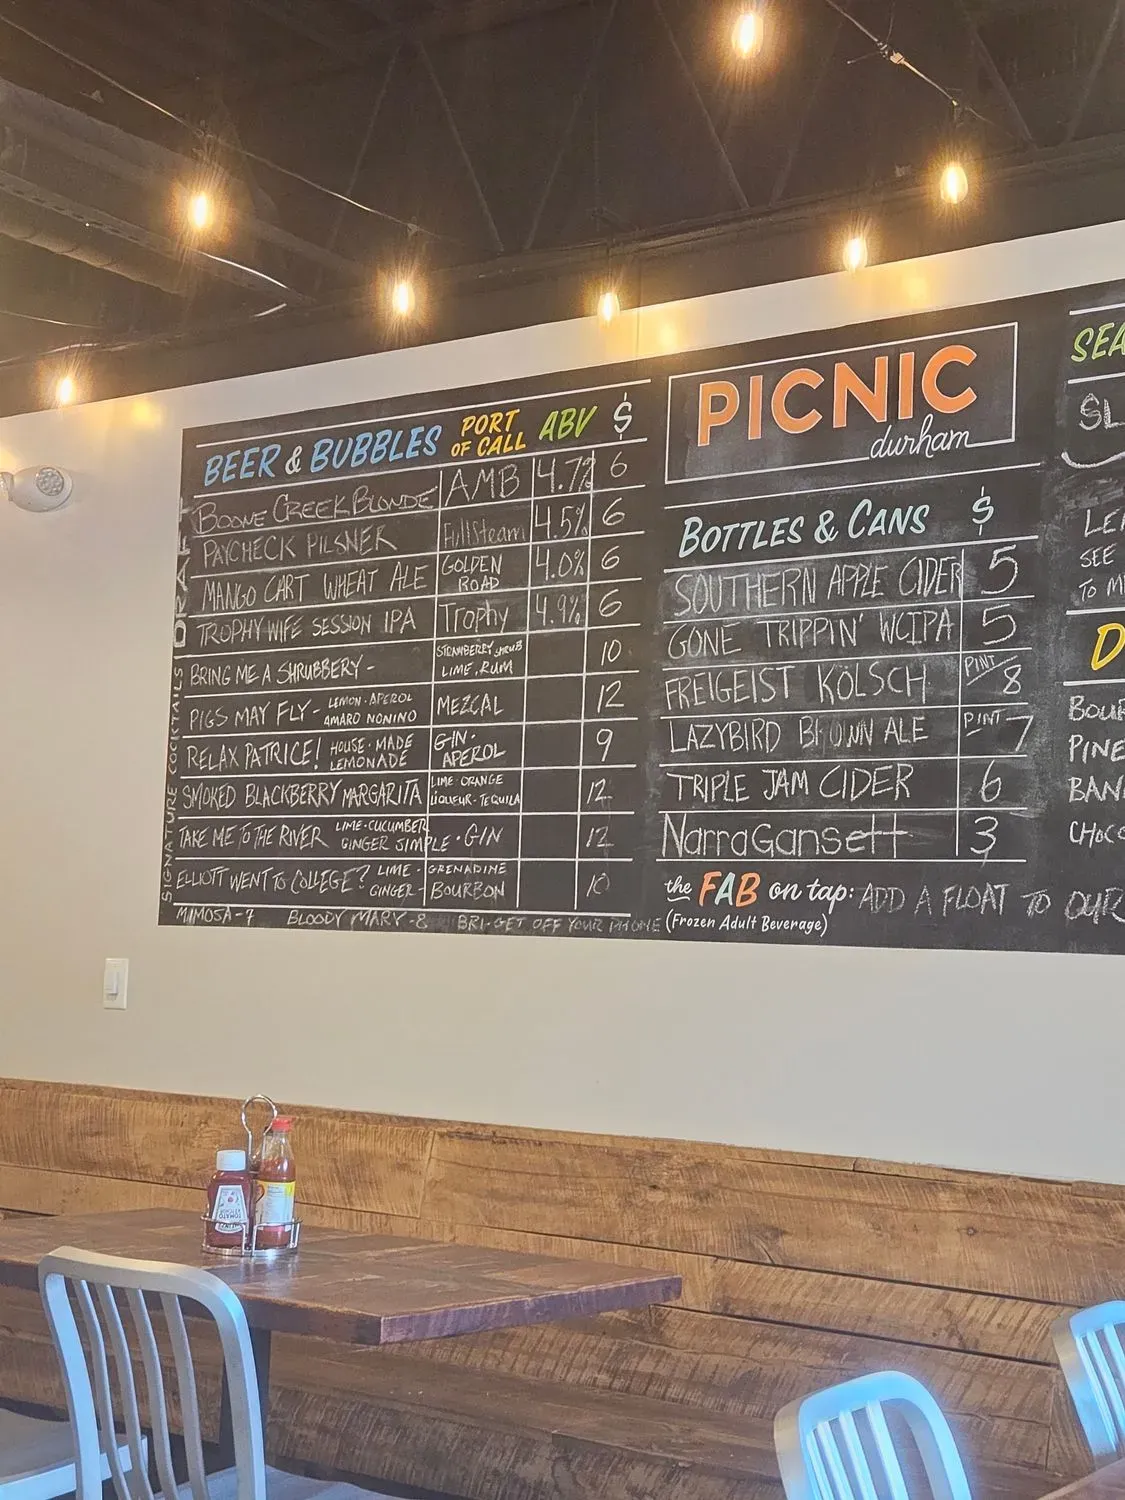 BEER & BUBBLES PORT OF CALL ABV $
DRAFT
BOONE CREEK BLONDE AMB 4.7% 6
PAYCHECK PILSNER Fullsteam 4.5% 6
MANGO CART WHEAT ALE GOLDEN ROAD 4.0% 6
TROPHY WIFE SESSION IPA Trophy 4.9% 6
SIGNATURE COCKTAILS
BRING ME A SHRUBBERY - STRAWBERRY SHRUB LIME, RUM 10
PIGS MAY FLY - LEMON · APEROL AMARO NONINO MEZCAL 12
RELAX PATRICE! HOUSE · MADE LEMONADE GIN · APEROL 9
SMOKED BLACKBERRY MARGARITA LIME · ORANGE LIQUEUR · TEQUILA 12
TAKE ME TO THE RIVER LIME · CUCUMBER GINGER SIMPLE · GIN 12
ELLIOTT WENT TO COLLEGE? LIME - GRENADINE GINGER - BOURBON 10
MIMOSA - 7 BLOODY MARY - 8 BRI-GET OFF YOUR PHONE
PICNIC
durham
BOTTLES & CANS $
SOUTHERN APPLE CIDER 5
GONE TRIPPIN' WCIPA 5
FREIGEIST KÖLSCH PINT 8
LAZYBIRD BROWN ALE PINT 7
TRIPLE JAM CIDER 6
NarraGansett 3
the FAB on tap: ADD A FLOAT TO OUR
(Frozen Adult Beverage)
SEA
SL
SEE
TO M
D
BOUR
PINE
BAN
CHOC
TOMATO KETCHUP